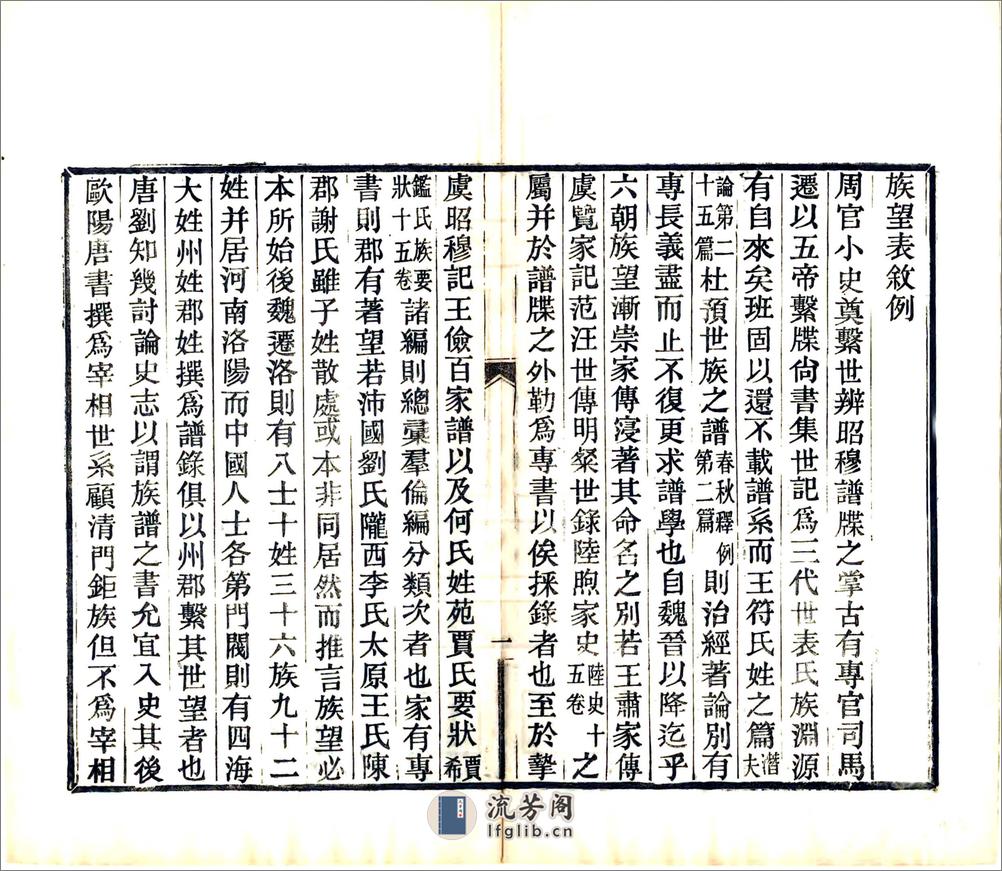 族望表敘例
周官小史奠繫世辨昭穆譜牒之掌古有專官司馬
遷以五帝繫牒尚書集世記爲三代世表氏族淵源
有自來矣班固以還不載譜系而王符氏姓之篇潛夫
論第二十五篇杜預世族之譜春秋釋例第二篇則治經著論別有
專長義盡而止不復更求譜學也自魏晉以降迄乎
六朝族望漸崇家傳寖著其命名之別若王肅家傳
虞覽家記范汪世傳明粲世錄陸煦家史陸史十五卷之
屬并於譜牒之外勒爲專書以俟採錄者也至於摯
虞昭穆記王儉百家譜以及何氏姓苑賈氏要狀賈希
鑑氏族要狀十五卷諸編則總彙羣倫編分類次者也家有專
書則郡有著望若沛國劉氏隴西李氏太原王氏陳
郡謝氏雖子姓散處或本非同居然而推言族望必
本所始後魏遷洛則有八士十姓三十六族九十二
姓并居河南洛陽而中國人士各第門閥則有四海
大姓州姓郡姓撰爲譜錄俱以州郡繫其世望者也
唐劉知幾討論史志以謂族譜之書允宜入史其後
歐陽唐書撰爲宰相世系顧清門鉅族但不爲宰相
一
流芳阁
lfglib.cn